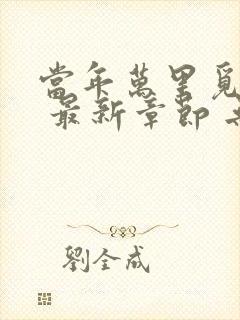 當年萬里覓
最新章節
劉全成